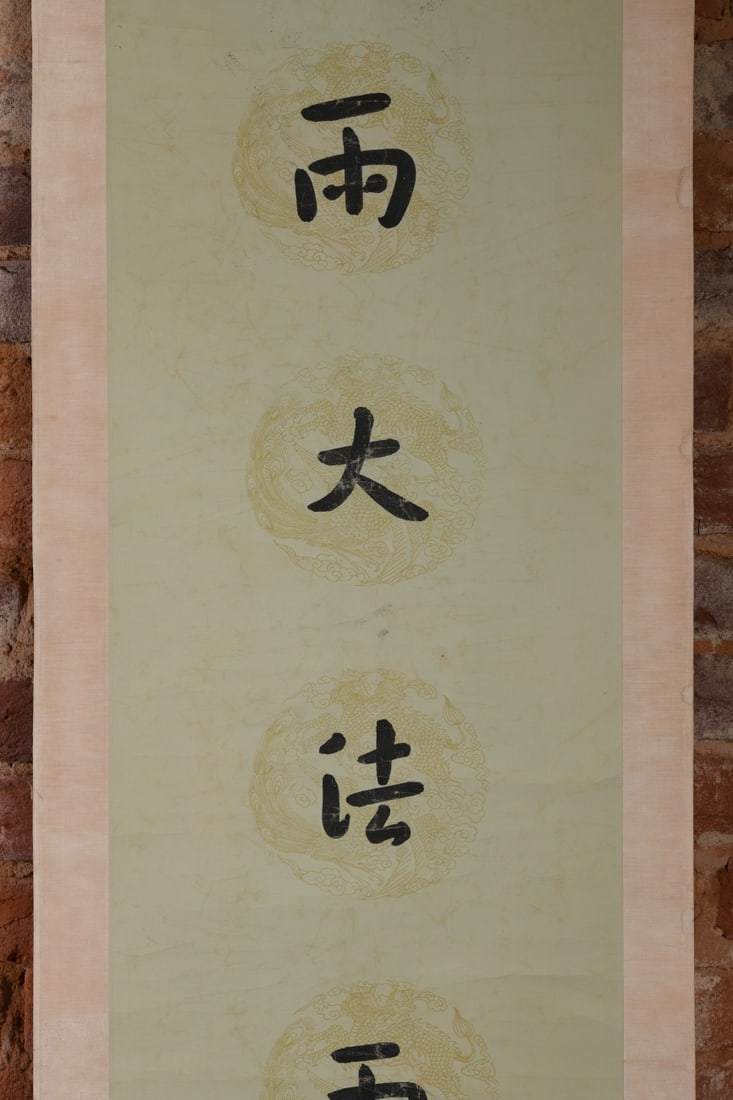 雨大法